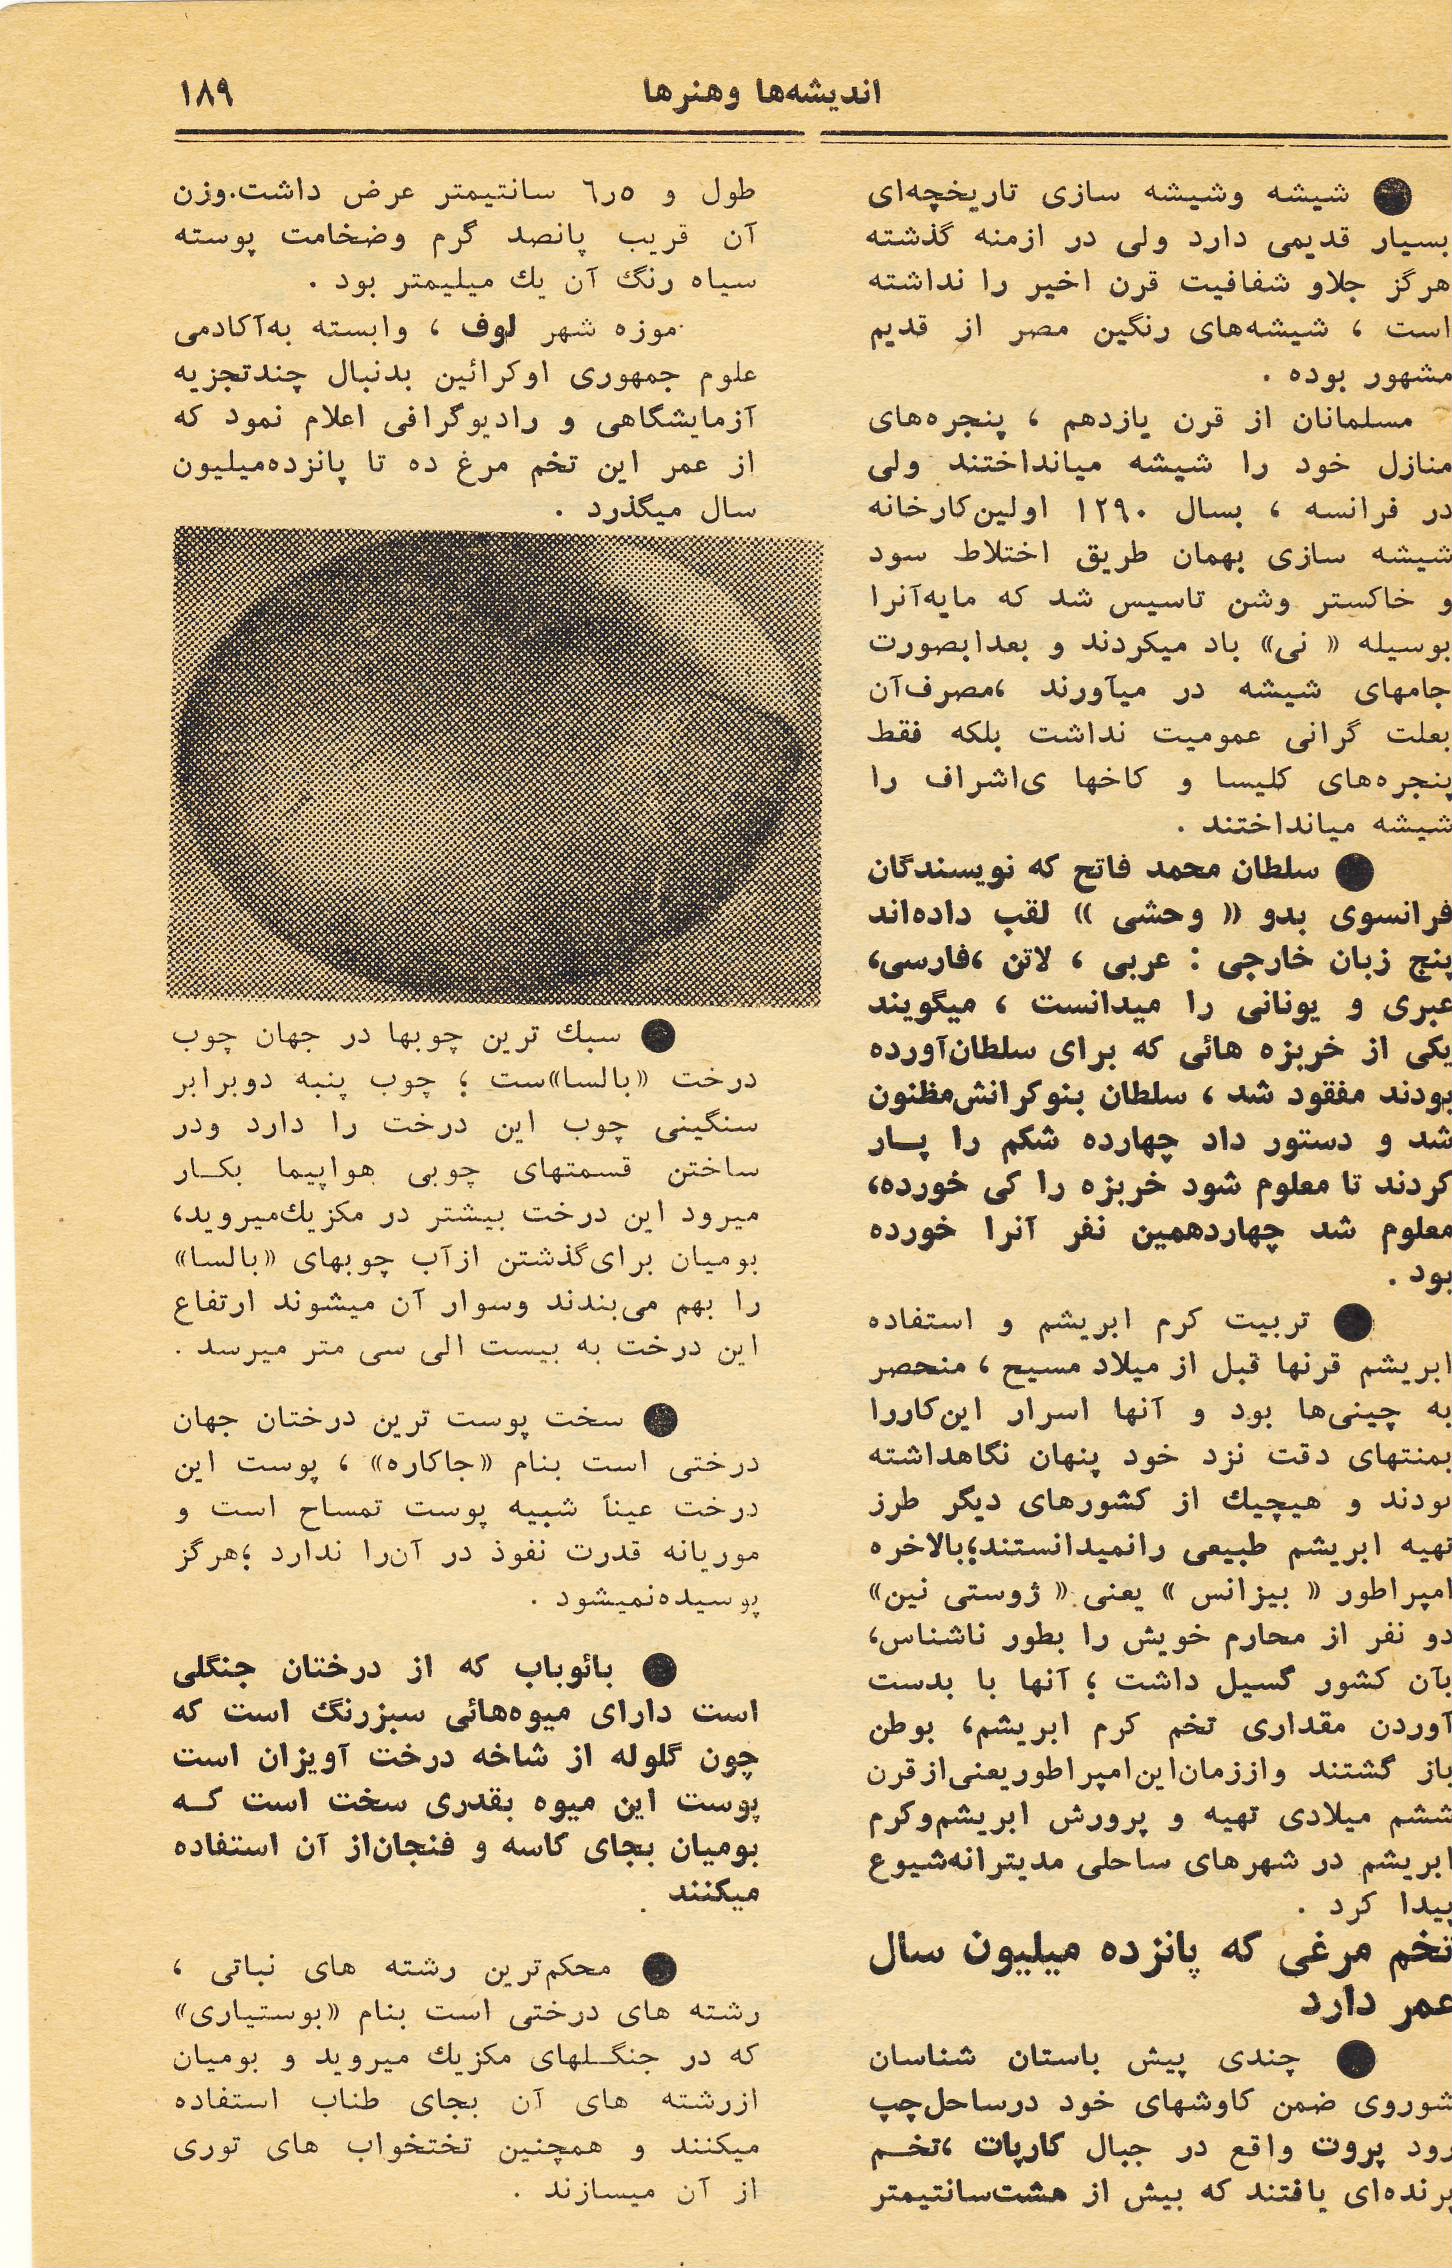 اندیشه‌ها وهنرها
۱۸۹
● شیشه وشیشه سازی تاریخچه‌ای
بسیار قدیمی دارد ولی در ازمنه گذشته
هرگز جلاو شفافیت قرن اخیر را نداشته
است ، شیشه‌های رنگین مصر از قدیم
مشهور بوده .
مسلمانان از قرن یازدهم ، پنجره‌های
منازل خود را شیشه میانداختند ولی
در فرانسه ، بسال ۱۲۹۰ اولین‌کارخانه
شیشه سازی بهمان طریق اختلاط سود
و خاکستر وشن تاسیس شد که مایه‌آنرا
بوسیله « نی» باد میکردند و بعدابصورت
جامهای شیشه در میآورند ،مصرف‌آن
بعلت گرانی عمومیت نداشت بلکه فقط
پنجره‌های کلیسا و کاخها ی‌اشراف را
شیشه میانداختند .
● سلطان محمد فاتح که نویسندگان
فرانسوی بدو « وحشی » لقب داده‌اند
پنج زبان خارجی : عربی ، لاتن ،فارسی،
عبری و یونانی را میدانست ، میگویند
یکی از خربزه هائی که برای سلطان‌آورده
بودند مفقود شد ، سلطان بنوکرانش‌مظنون
شد و دستور داد چهارده شکم را پــار
کردند تا معلوم شود خربزه را کی خورده،
معلوم شد چهاردهمین نفر آنرا خورده
بود .
● تربیت کرم ابریشم و استفاده
ابریشم قرنها قبل از میلاد مسیح ، منحصر
به چینی‌ها بود و آنها اسرار این‌کاررا
بمنتهای دقت نزد خود پنهان نگاهداشته
بودند و هیچیك از کشورهای دیگر طرز
تهیه ابریشم طبیعی رانمیدانستند؛بالاخره
امپراطور « بیزانس » یعنی « ژوستی نین»
دو نفر از محارم خویش را بطور ناشناس،
بآن کشور گسیل داشت ؛ آنها با بدست
آوردن مقداری تخم کرم ابریشم، بوطن
باز گشتند واززمان‌این‌امپراطوریعنی‌ازقرن
ششم میلادی تهیه و پرورش ابریشم‌وکرم
ابریشم در شهرهای ساحلی مدیترانه‌شیوع
پیدا کرد .
تخم مرغی که پانزده میلیون سال
عمر دارد
● چندی پیش باستان شناسان
شوروی ضمن کاوشهای خود درساحل‌چپ
رود پروت واقع در جبال کارپات ،تخــم
پرنده‌ای یافتند که بیش از هشت‌سانتیمتر
طول و ۶٫۵ سانتیمتر عرض داشت.وزن
آن قریب پانصد گرم وضخامت پوسته
سیاه رنگ آن یك میلیمتر بود .
موزه شهر لوف ، وابسته به‌آکادمی
علوم جمهوری اوکرائین بدنبال چندتجزیه
آزمایشگاهی و رادیوگرافی اعلام نمود که
از عمر این تخم مرغ ده تا پانزده‌میلیون
سال میگذرد .
● سبك ترین چوبها در جهان چوب
درخت «بالسا»ست ؛ چوب پنبه دوبرابر
سنگینی چوب این درخت را دارد ودر
ساختن قسمتهای چوبی هواپیما بکــار
میرود این درخت بیشتر در مکزیك‌میروید،
بومیان برای‌گذشتن ازآب چوبهای «بالسا»
را بهم می‌بندند وسوار آن میشوند ارتفاع
این درخت به بیست الی سی متر میرسد .
● سخت پوست ترین درختان جهان
درختی است بنام «جاکاره» ، پوست این
درخت عیناً شبیه پوست تمساح است و
موریانه قدرت نفوذ در آن‌را ندارد ؛هرگز
پوسیده‌نمیشود .
● بائوباب که از درختان جنگلی
است دارای میوه‌هائی سبزرنگ است که
چون گلوله از شاخه درخت آویزان است
پوست این میوه بقدری سخت است کــه
بومیان بجای کاسه و فنجان‌از آن استفاده
میکنند .
● محکم‌ترین رشته های نباتی ،
رشته های درختی است بنام «بوستیاری»
که در جنگــلهای مکزیك میروید و بومیان
ازرشته های آن بجای طناب استفاده
میکنند و همچنین تختخواب های توری
از آن میسازند .